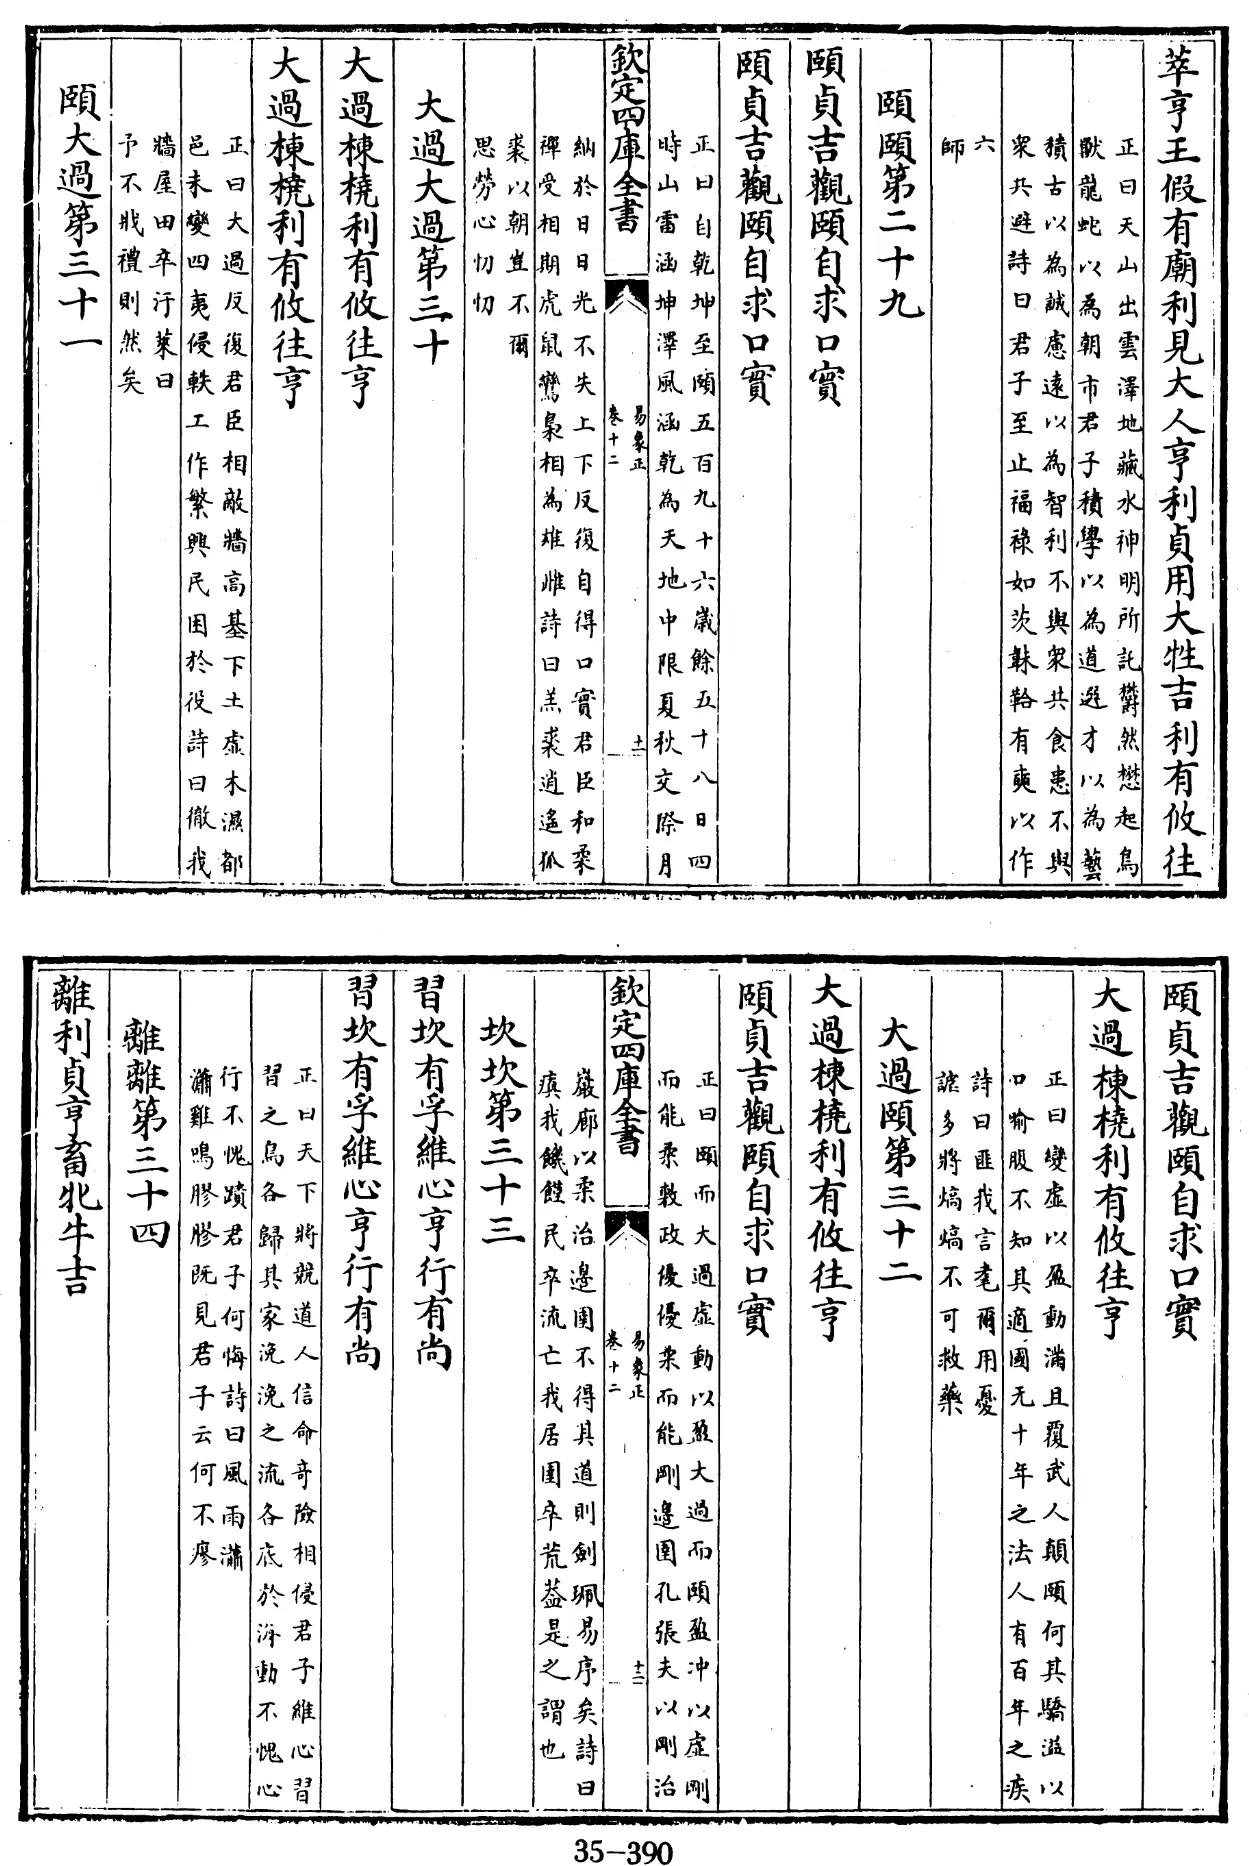 萃亨王假有廟利見大人亨利貞用大牲吉利有攸往
正曰天山出雲澤地藏水神明所託欝然懋起鳥
獸龍蛇以為朝市君子積學以為道選才以為藝
積古以為誠慮遠以為智利不與衆共食患不與
衆共避詩曰君子至止福祿如茨韎韐有奭以作
六
師
頤頤第二十九
頤貞吉觀頤自求口實
頤貞吉觀頤自求口實
正曰自乾坤至頤五百九十六歲餘五十八日四
時山雷涵坤澤風涵乾為天地中限夏秋交際月
欽定四庫全書
易象正
卷十二
十一
納於日日光不失上下反復自得口實君臣和柔
禪受相期虎鼠鸞梟相為雄雌詩曰羔裘逍遙狐
裘以朝豈不爾
思勞心忉忉
大過大過第三十
大過棟橈利有攸往亨
大過棟橈利有攸往亨
正曰大過反復君臣相敵牆高基下土虛木濕都
邑未變四夷侵軼工作繁興民困於役詩曰徹我
牆屋田卒汙萊曰
予不戕禮則然矣
頤大過第三十一
頤貞吉觀頤自求口實
大過棟橈利有攸往亨
正曰變虛以盈動滿且覆武人顛頤何其驕溢以
口喻腹不知其適國无十年之法人有百年之疾
詩曰匪我言耄爾用憂
謔多將熇熇不可救藥
大過頤第三十二
大過棟橈利有攸往亨
頤貞吉觀頤自求口實
正曰頤而大過虛動以盈大過而頤盈冲以虛剛
而能柔敷政優優柔而能剛邊圉孔張夫以剛治
欽定四庫全書
易象正
卷十二
十二
巖廊以柔治邊圉不得其道則劍珮易序矣詩曰
瘨我饑饉民卒流亡我居圉卒荒葢是之謂也
坎坎第三十三
習坎有孚維心亨行有尚
習坎有孚維心亨行有尚
正曰天下將兢道人信命奇險相侵君子維心習
習之鳥各歸其家浼浼之流各底於海動不愧心
行不愧蹟君子何悔詩曰風雨瀟
瀟雞鳴膠膠既見君子云何不瘳
離離第三十四
離利貞亨畜牝牛吉
35-390